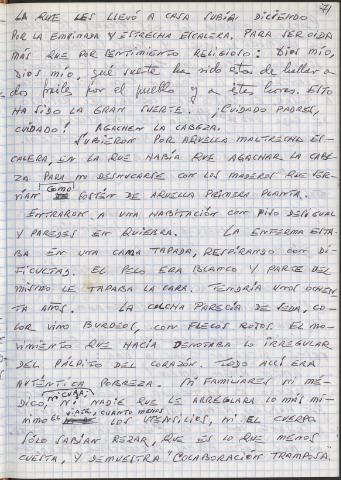 71
LA QUE LES LLEVÓ A CASA SUBÍA DICIENDO
POR LA EMPINADA Y ESTRECHA ESCALERA, PARA SER OIDA
MÁS QUE POR SENTIMIENTO RELIGIOSO: DIOS MIO,
DIOS MIO, qué suerte ha sido esta de hallar a
dos frailes por el pueblo y a estas horas. ESTO
HA SIDO LA GRAN SUERTE. ¡CUIDADO PADRES,
CUIDADO! AGACHEN LA CABEZA.
SUBIERON POR AQUELLA MALTRECHA ES-
CALERA, EN LA QUE HABÍA QUE AGACHAR LA CABE-
ZA PARA NO DESNUCARSE CON LOS MADEROS QUE SER-
VÍAN COMO SOSTÉN DE AQUELLA PRIMERA PLANTA.
ENTRARON A UNA HABITACIÓN CON PISO DESIGUAL
Y PAREDES EN QUIEBRA. LA ENFERMA ESTA-
BA EN UNA CAMA TAPADA, RESPIRANDO CON DI-
FICULTAD. EL PELO ERA BLANCO Y PARTE DEL
MISMO LE TAPABA LA CARA. TENDRÍA UNOS OCHEN-
TA AÑOS. LA COLCHA PARECÍA DE SEDA, CO-
LOR VINO BURDEOS, CON FLECOS ROTOS. EL MO-
VIMIENTO QUE HACÍA DENOTABA LO IRREGULAR
DEL PÁLPITO DEL CORAZÓN. TODO ALLÍ ERA
AUTÉNTICA POBREZA. NI FAMILIARES NI MÉ-
DICO, NI CURA, NI NADIE QUE LE ARREGLARA LO MÁS MI-
NIMO EL VIAJE, CUANTO MENOS LOS UTENSILIOS, NI EL CUERPO
SÓLO SABÍAN REZAR, QUE ES LO QUE MENOS
CUESTA, Y DEMUESTRA COLABORACIÓN TRAMPOSA.